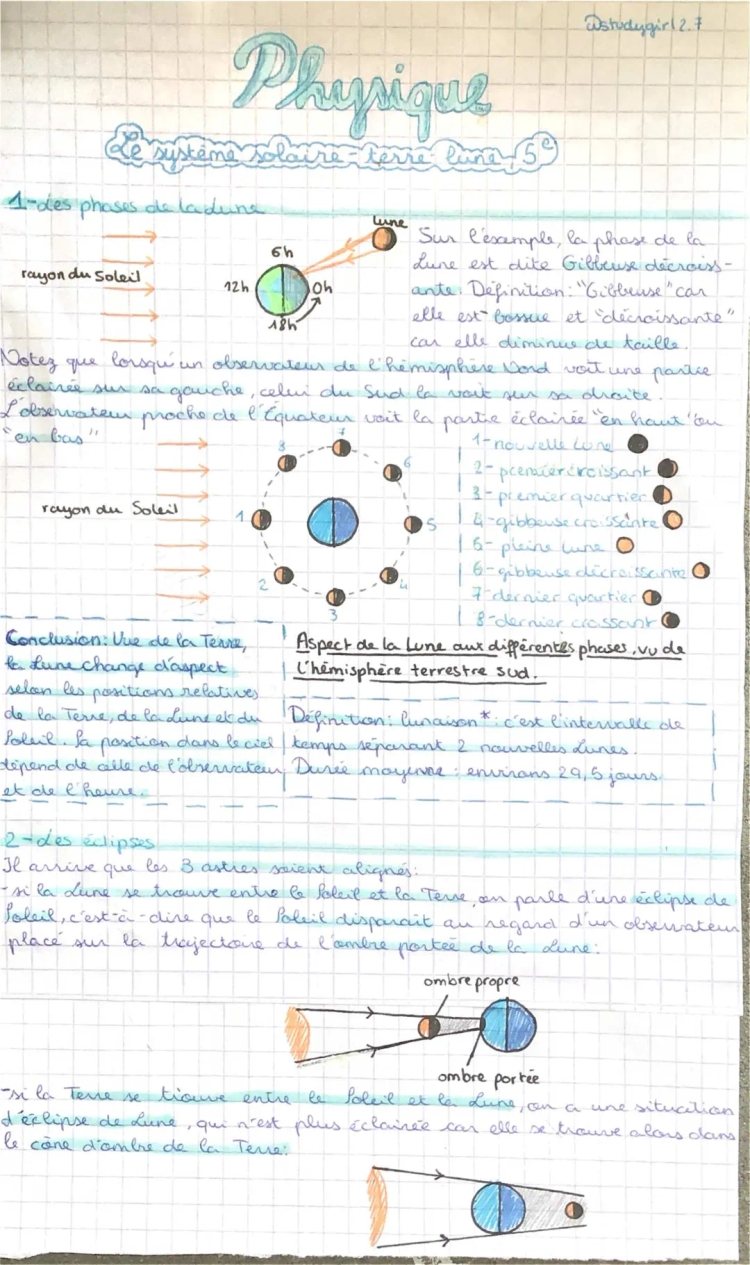 @studygirl2.7
Physique
Le système solaire-terre lune, 5e
1-des phases de la Lune
rayon du Soleil
6h
12h
0h
18h
Lune
Sur l'éxample, la phase de la
Lune est dite Gibbeuse décroiss-
ante. Définition: "Gibbeuse" car
elle est bossue et "décroissante"
car elle diminue de taille.
Notez que lorsqu'un observateur de l'hémisphère Nord voit une partie
éclairée sur sa gauche, celui du Sud la voit sur sa droite.
L'observateur proche de l'Équateur voit la partie éclairée "en haut" ou
"en bas"
rayon du Soleil
8
7
6
1
5
2
3
4
1-nouvelle Lune
2-premier croissant
3-premier quartier
4-gibbeuse croissante
5-pleine Lune
6-gibbeuse décroissante
7-dernier quartier
8-dernier croissant
Aspect de la Lune aux différentes phases, vu de
l'hémisphère terrestre sud.
Conclusion: Vue de la Terre,
la Lune change d'aspect
selon les positions relatives
de la Terre, de la Lune et du
Soleil. Sa position dans le ciel
dépend de celle de l'observateur
et de l'heure.
Définition: lunaison*: c'est l'intervalle de
temps séparant 2 nouvelles Lunes.
Durée moyenne: environs 29,5 jours.
2-des éclipses
Il arrive que les 3 astres soient alignés:
-si la Lune se trouve entre le Soleil et la Terre, on parle d'une éclipse de
Soleil, c'est-à-dire que le Soleil disparait au regard d'un observateur
placé sur la trajectoire de l'ombre portée de la Lune:
ombre propre
ombre portée
-si la Terre se trouve entre le Soleil et la Lune, on a une situation
d'éclipse de Lune, qui n'est plus éclairée car elle se trouve alors dans
le cône d'ombre de la Terre: